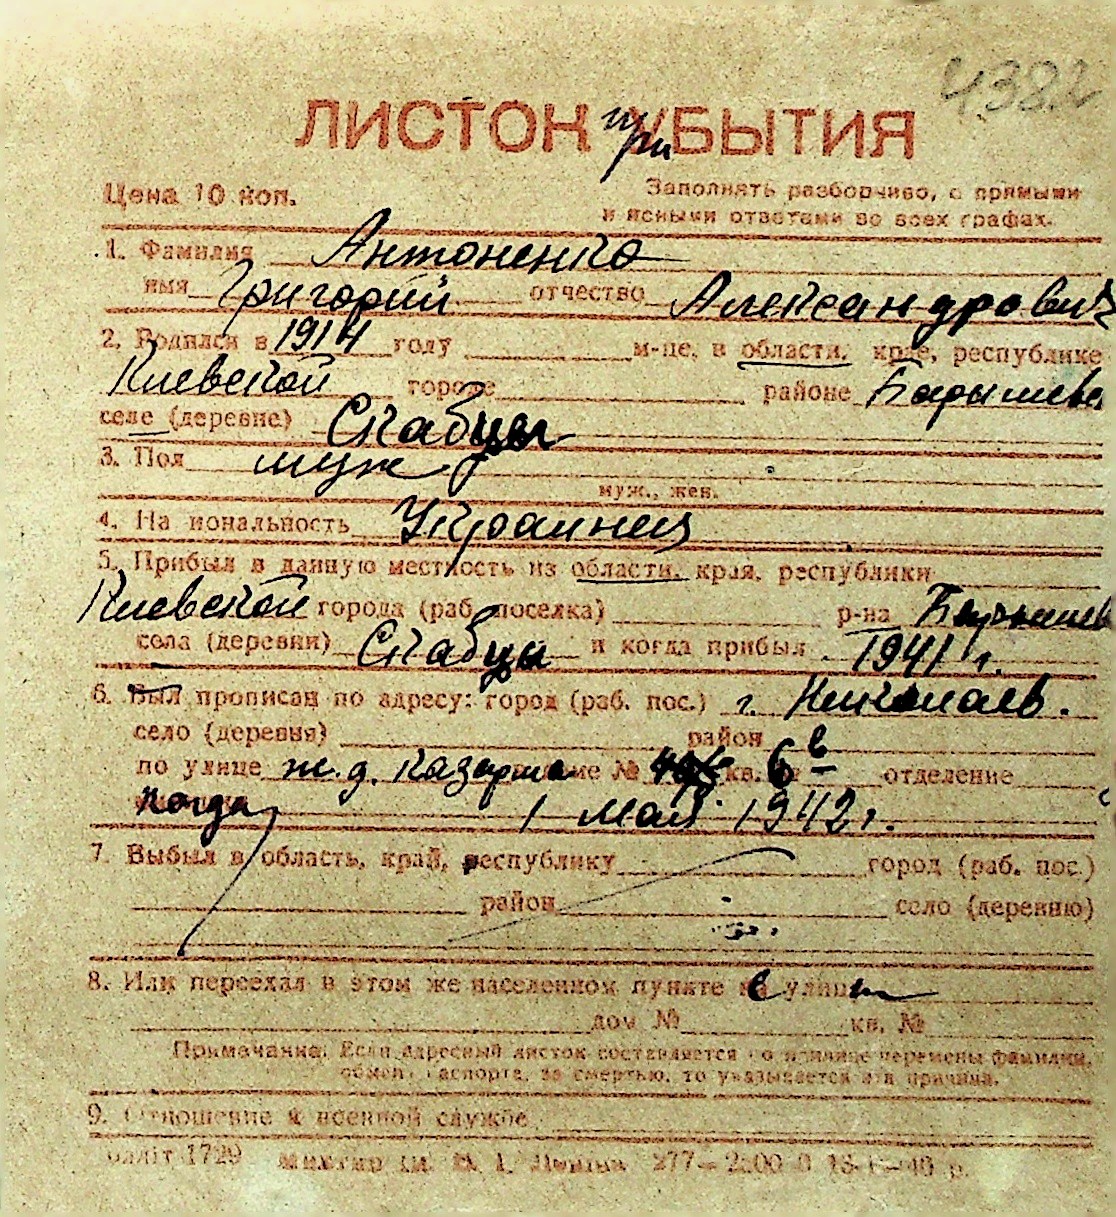 4382
ЛИСТОК при УБЫТИЯ
Цена 10 коп. Заполнять разборчиво, с прямыми
и ясными ответами во всех графах.
1. Фамилия Антоненко
имя Григорий отчество Александрович
2. Родился в 1914 году м-це, в области, крае, республике
Киевской городе районе Барышевс
селе (деревне) Скабцы
3. Пол муж
муж., жен.
4. На иональность Украинец
5. Прибыл в данную местность из области, края, республики
Киевской города (раб. поселка) р-на Барышев
села (деревни) Скабцы и когда прибыл 1941 г.
6. Был прописан по адресу: город (раб. пос.) г. Николаев.
село (деревня) район
по улице ж.д. казарма № кв. 6 в отделение
когда 1 мая 1942 г.
7. Выбыл в область, край, республику город (раб. пос.)
район село (деревню)
8. Или переехал в этом же населенном пункте улице
дом № кв. №
Примечание: Если адресный листок составляется по причине перемены фамилии,
обмена паспорта, за смертью, то указывается эта причина.
9. Отношение к военной службе
1729